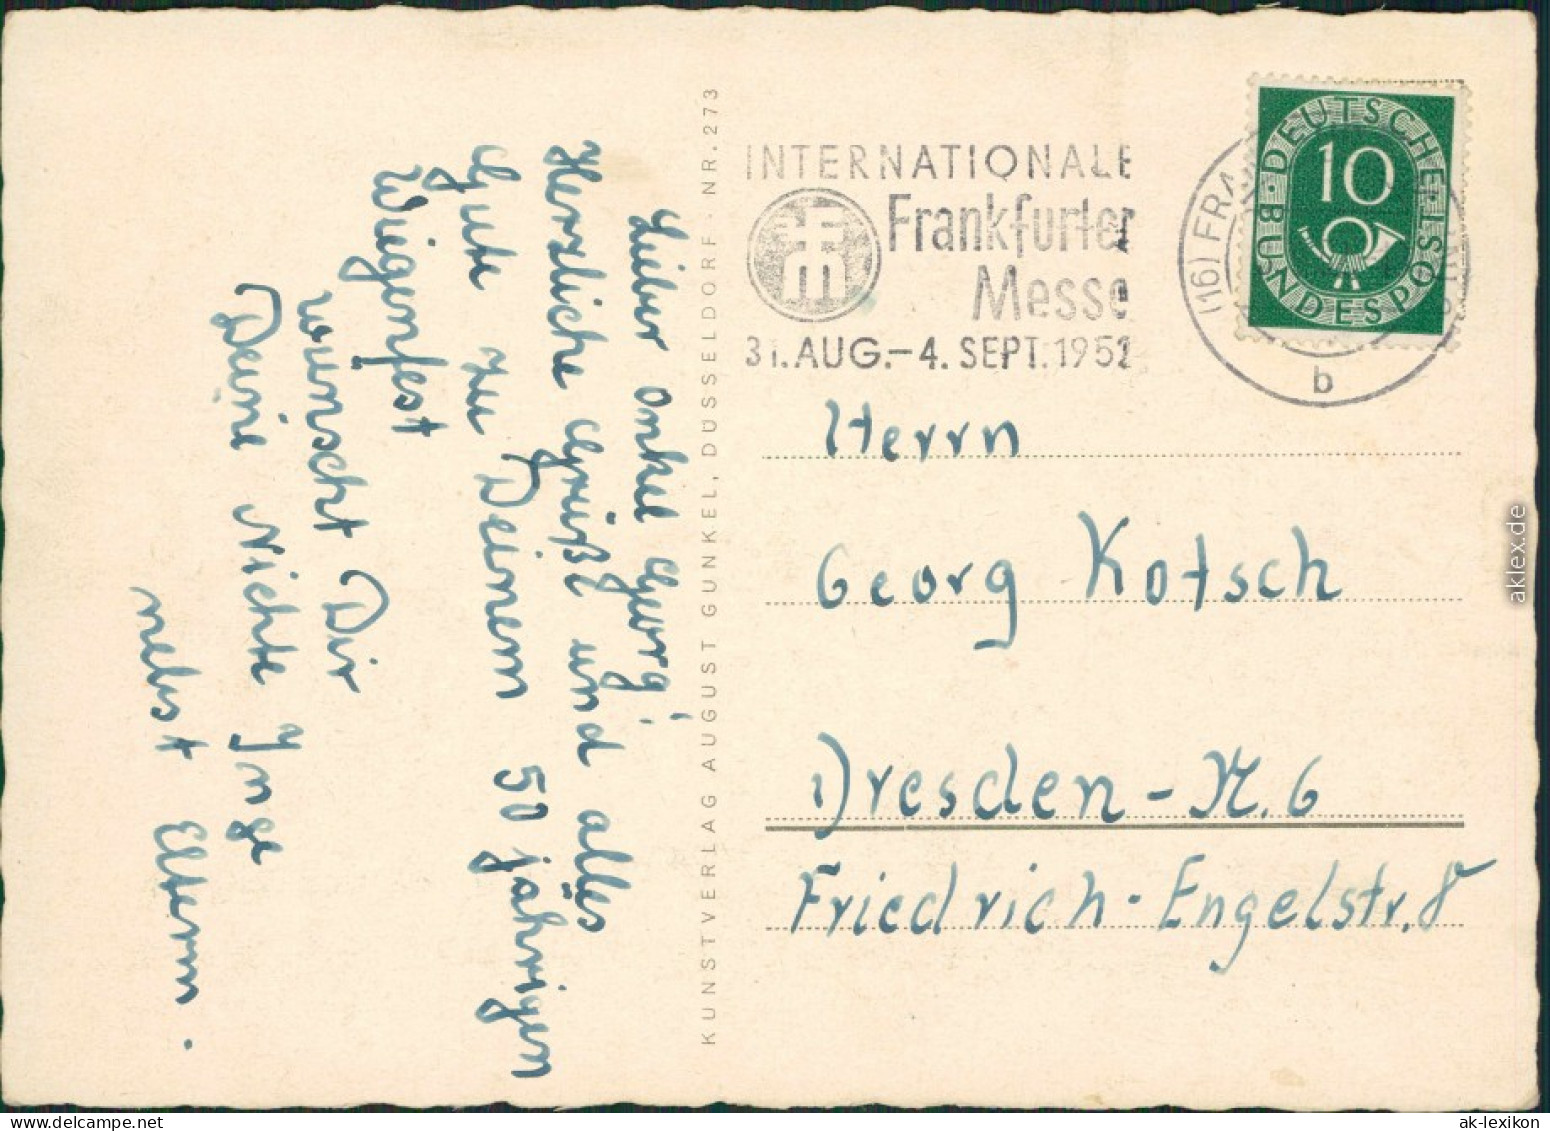 Lieber Onkel Georg!
Herzliche Grüße und alles
Gute zu Deinem 50 jährigen
Wiegenfest
wünscht Dir
Deine Nichte Inge
nebst Eltern.
KUNSTVERLAG AUGUST GUNKEL, DÜSSELDORF · NR. 273
INTERNATIONALE
Frankfurter
Messe
31. AUG.-4. SEPT. 1952
(16) FRA
b
DEUTSCHE
BUNDESPOST
10
Herrn
Georg Kotsch
Dresden-N.6
Friedrich-Engelstr. 8
aklex.de
ak-lexikon